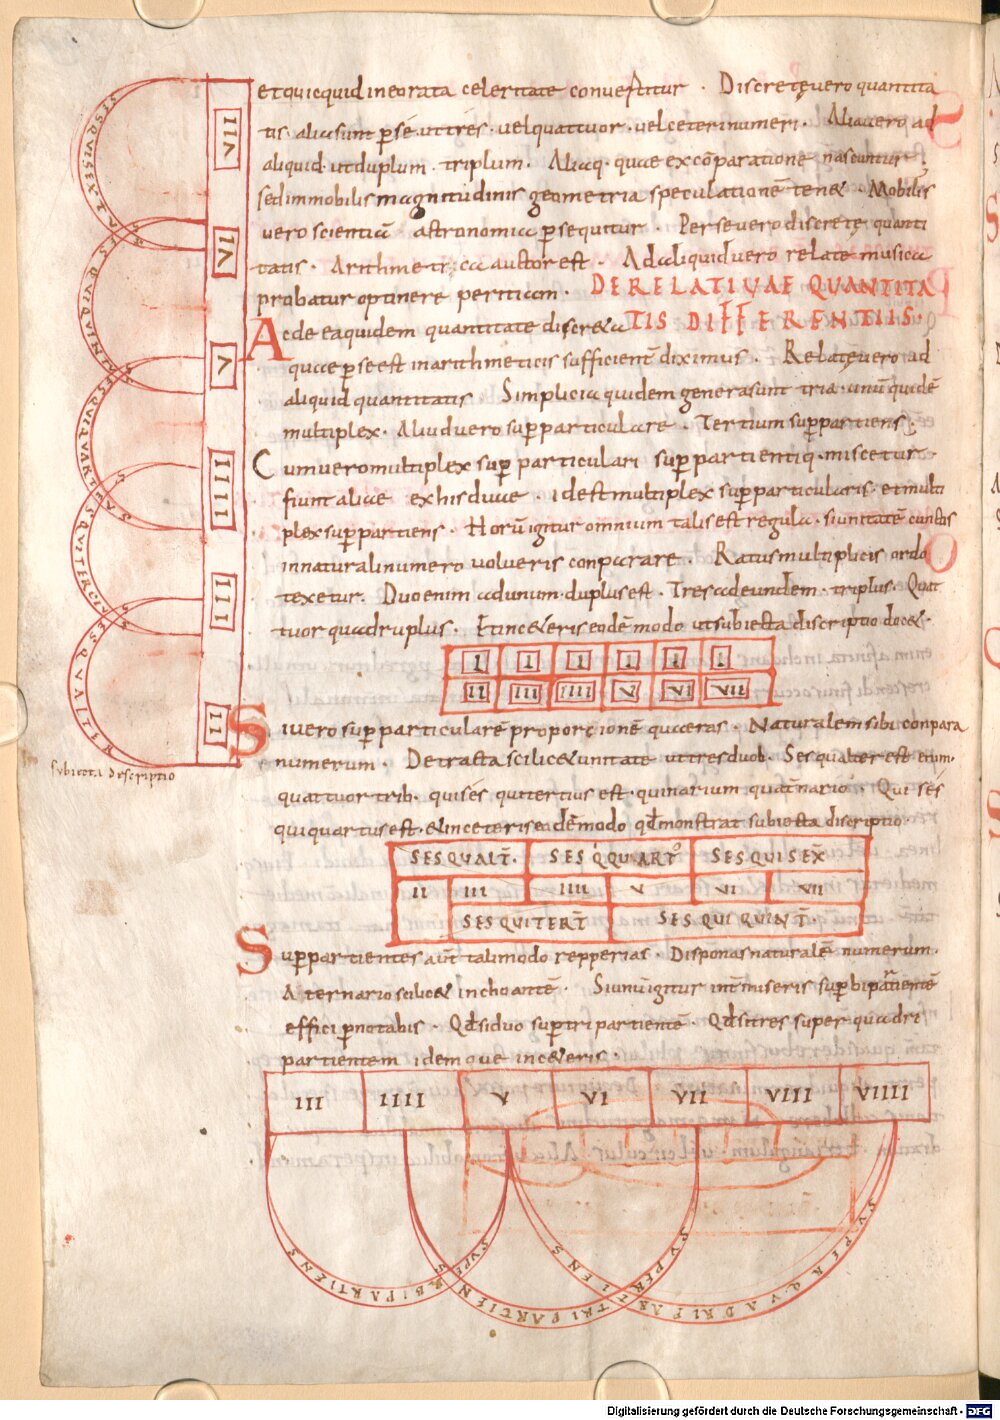 et quicquid in eorata celeritate convertitur . Discrete vero quantita
tis . alia sunt p se . ut tres . vel quattuor . vel ceteri numeri . Alia vero ad
aliquid . ut duplum . triplum . Aliaq . quae ex cōparatione nascuntur ;
sed immobilis magnitudinis geometria speculationē tenet . Mobilis
vero scientiā . astronomica psequitur . Per se vero discrete quanti
tatis . Arithmetica auctor est . Ad aliquid vero relate musica
probatur optinere peritiam . DE RELATIVAE QUANTITA
TIS DIFFERENTIIS .
Ac de ea quidem quantitate discreta
quae p se est in arithmeticis sufficient diximus . Relate vero ad
aliquid quantitatis Simplicia quidem genera sunt tria . unū quidē
multiplex . Aliud vero suppar ticulare . Tertium suppartiens .
Cum vero multiplex sup particulari suppartientiq . miscetur
fiunt aliae ex his duae . id est multiplex supparticularis . et multi
plex suppartiens . Horū igitur omnium talis est regula . si unitatē cunctis
in naturali numero volueris conparare . Ratus multiplicis ordo
texetur . Duo enim ad unum . duplus est . Tres ad eundem . triplus . Quat
tuor quadruplus . Et in ceteris eodē modo ut subiecta discriptio docet .
I I I I I I
II III IIII V VI VII
Si vero supparticularē proporcionē quaeras . Naturalem sibi conpara
numerum . Detracta scilicet unitate ut tres duob . Sesqualter est enim .
quattuor trib . qui sesquitertius est . quinarium quat nario . Qui ses
qui quartus est . et in ceteris eodē modo qd monstrat subiecta discriptio .
SESQUALT . SESQQUART SESQUISEX
II III IIII V VI VII
SESQUITERT SESQUI QUINT .
Suppartientes aut tali modo repperias . Disponas naturalē numerum .
A ternario scilicet inchoantē . Si unū igitur intmiseris supbipartientē
effici pnotabis . Qd si duo suptripartientē . Qd si tres super quadri
partientem idemque in ceteris .
III IIII V VI VII VIII VIIII
SUPER BIPARTIENS
SUPER TRIPARTIENS
SUPER QUADRIPARTIENS
VII
VI
V
IIII
III
II
SESQUISEXTA
SESQUIQUINTA
SESQUIQUARTA
SESQUITERCIA
SESQUALTERA
Subiecta descriptio
Digitalisierung gefördert durch die Deutsche Forschungsgemeinschaft - DFG